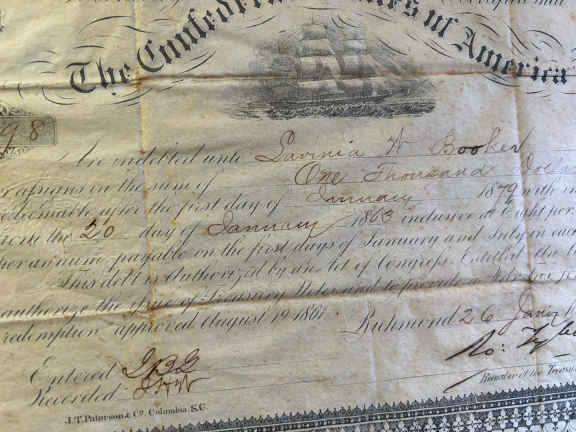 The Confederate States of America
98
Are indebted unto Lavinia W Booker
or assigns in the sum of One Thousand Dollars
redeemable after the first day of January 1879 with in
from the 20 day of January 1863 inclusive at Eight per
per annum payable on the first days of January and July in each
This debt is Authorized by an Act of Congress, Entitled An
authorize the issue of Treasury Notes and to provide a War
redemption" approved August 19. 1861. Richmond 26 Jany
Entered
Recorded
Ro: Tyler
Register of the Treasu
J.T. Paterson & Co. Columbia S.C.